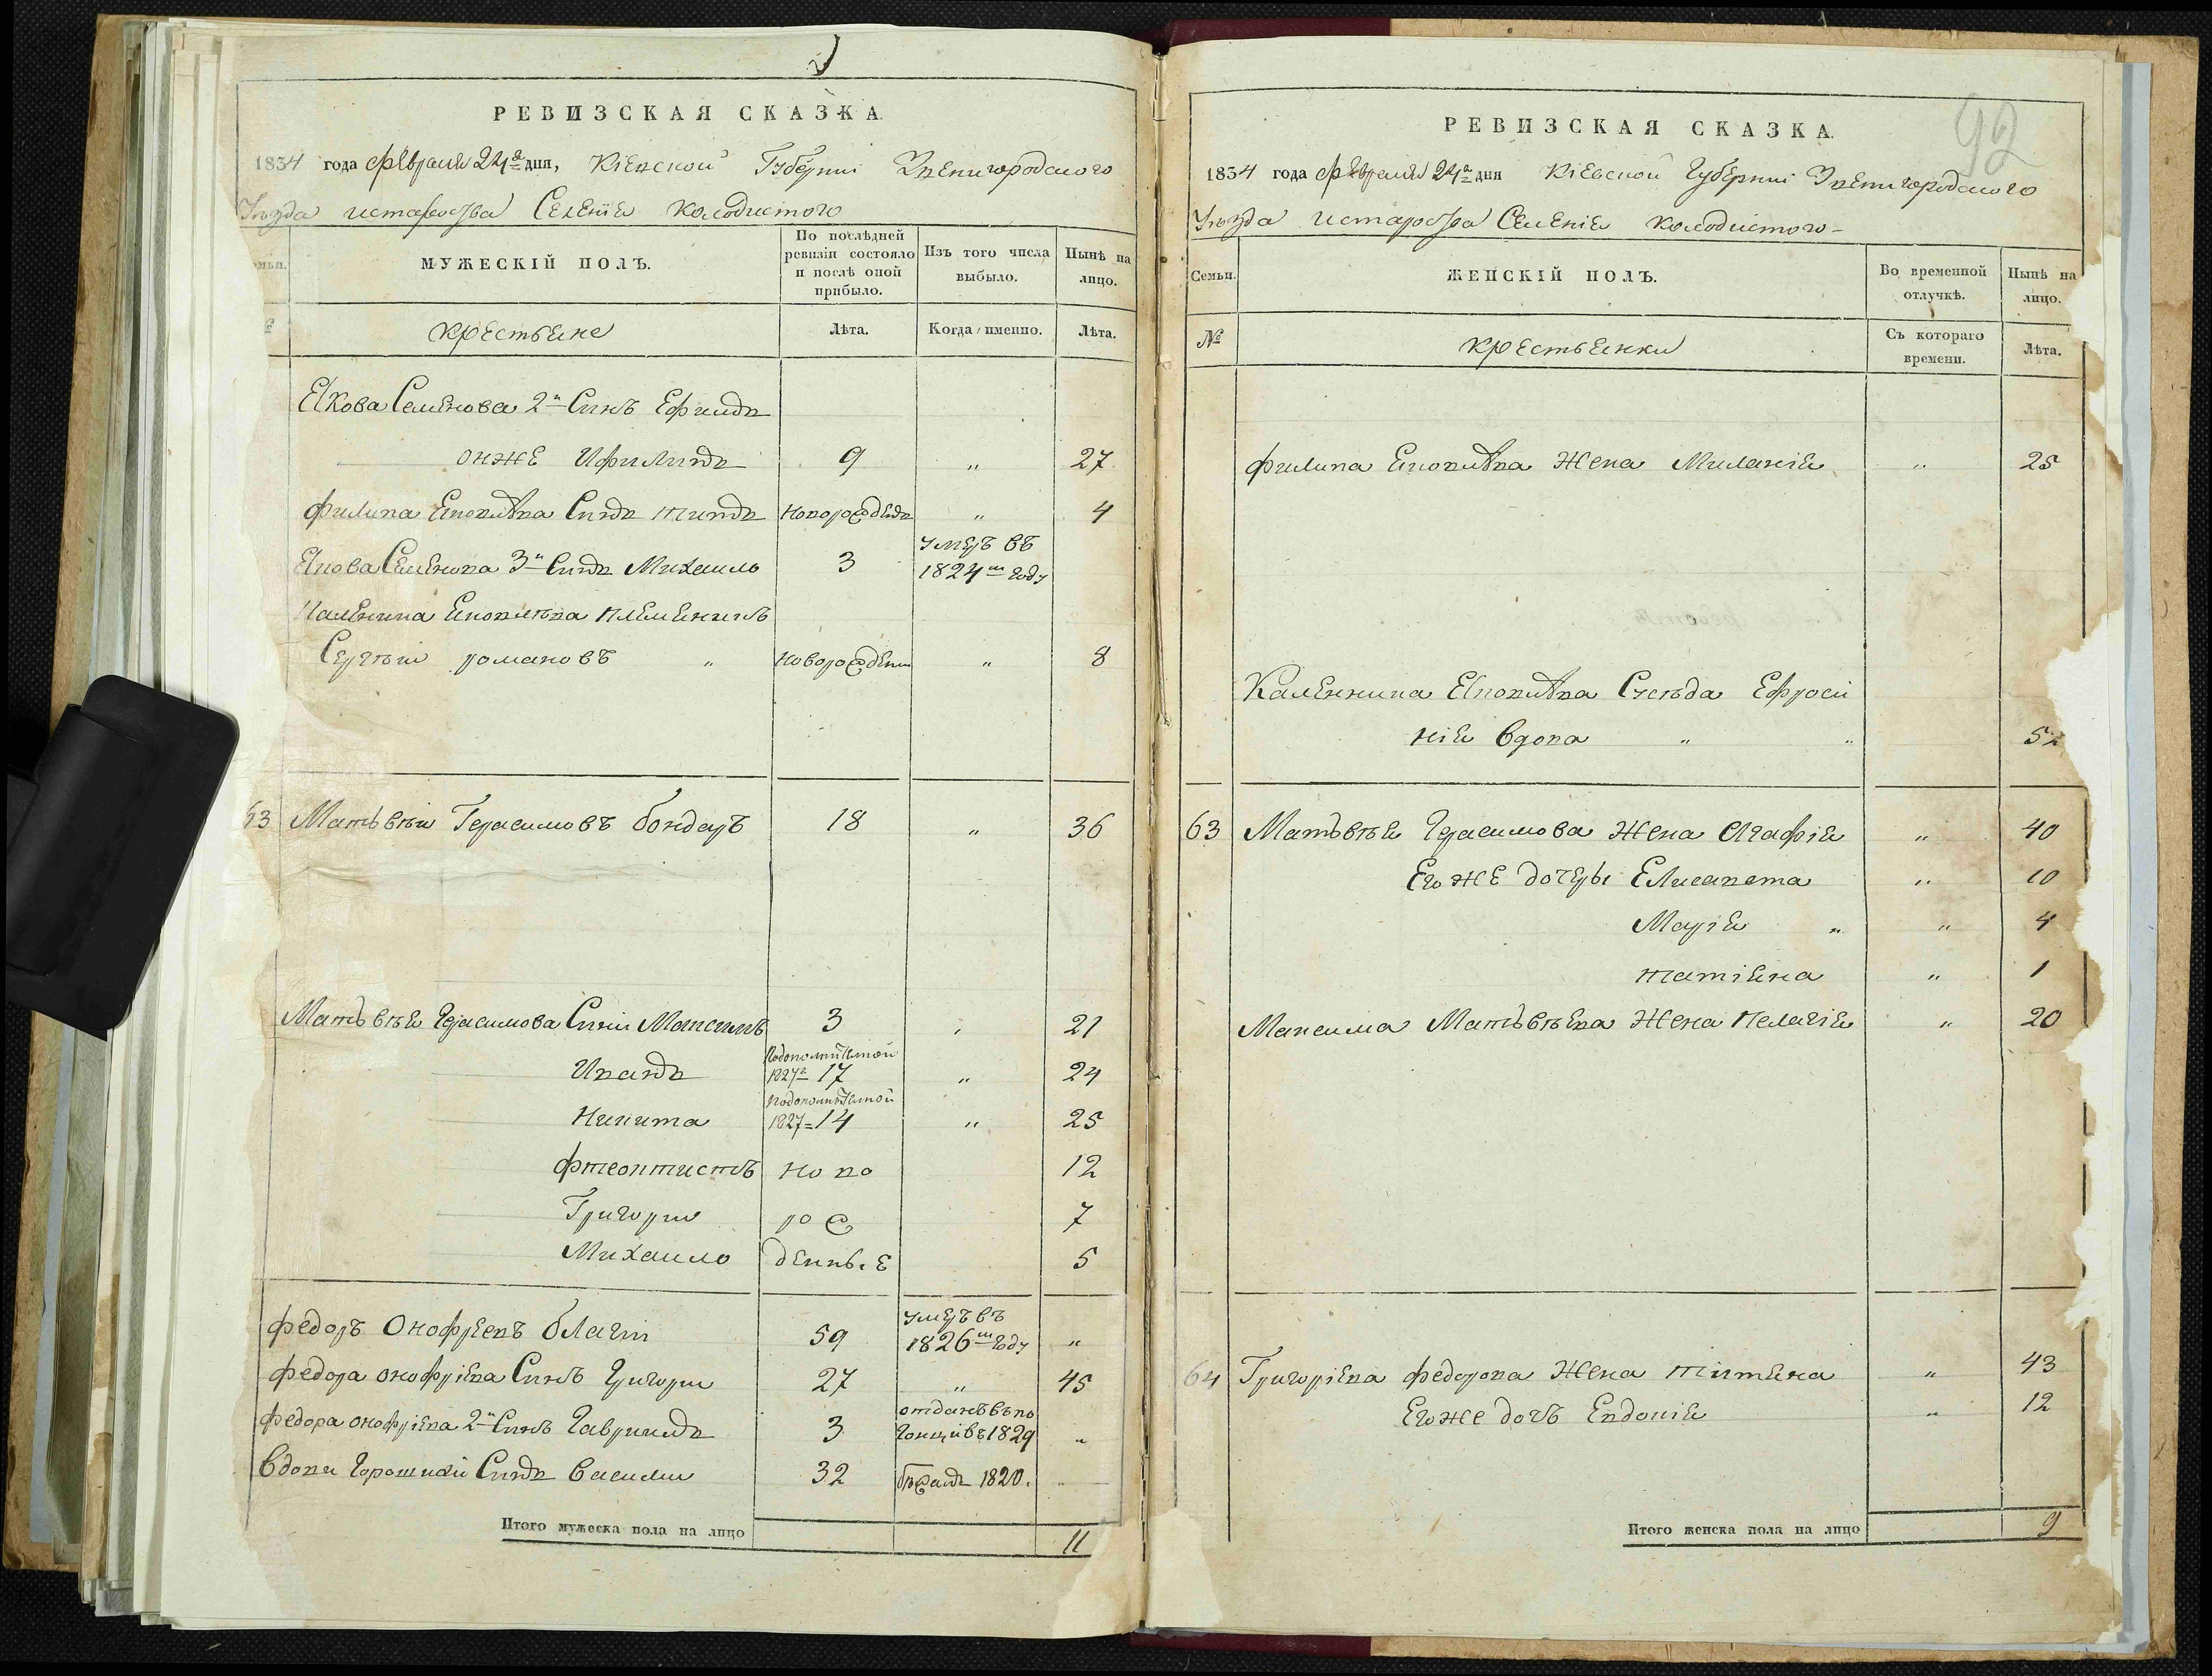 РЕВИЗСКАЯ СКАЗКА.
1834 года февраля 24го дня, Кіевской Губерніи Звенигородского
Уезда Селеніе Колодистого
МУЖЕСКІЙ ПОЛЪ.
По послѣдней ревизіи состояло и послѣ оной прибыло.
Изъ того числа выбыло.
Нынѣ на лицо.
крестьяне
Лѣта.
Когда именно.
Лѣта.
Якова Семенова 2й Синъ
онже Филипъ 9 „ 27
Филипа Яковлева Синъ новорожденъ „ 4
Якова Семенова 3й Синъ Михаило 3 умеръ въ 1824м году
Яковлева племеникъ
Сергѣй романовъ „ новорожден „ 8
63 Матьвѣй Герасимовъ бондаръ 18 „ 36
Матьвѣя Герасимова Синъ Максимъ 3 „ 21
Иванъ 1827г 17 „ 24
Никита 1827 = 14 „ 25
фтеоктистъ ново 12
Григори рож 7
Михаило денные 5
федоръ Онофреевъ 59 умеръ въ 1826м году „
федора онофріева Синъ Григори 27 „ 45
федора онофріева 2й Синъ Гавриилъ 3 отданъ въ 1829 „
вдови Синъ Василии 32 бежалъ 1820. „
Итого мужеска пола на лицо 11
92
РЕВИЗСКАЯ СКАЗКА.
1834 года февраля 24го дня Кіевской Губерніи Звенигородского
Уезда Селеніе Колодистого
Семьи.
ЖЕНСКІЙ ПОЛЪ.
Во временной отлучкѣ.
Нынѣ на лицо.
№
крестьянки
Съ котораго времени.
Лѣта.
филипа Яковлева Жена Миланія „ 25
Яковлева Ефроси
нія вдова „ „
63 Матьвѣя Герасимова Жена Агафія „ 40
Его же дочеры Елисавета „ 10
Марія „ „ 4
татіяна „ 1
Максима Матьвѣева Жена пелагія „ 20
64 Григоріева федорова Жена „ 43
Его же дочь Евдокія „ 12
Итого женска пола на лицо 9